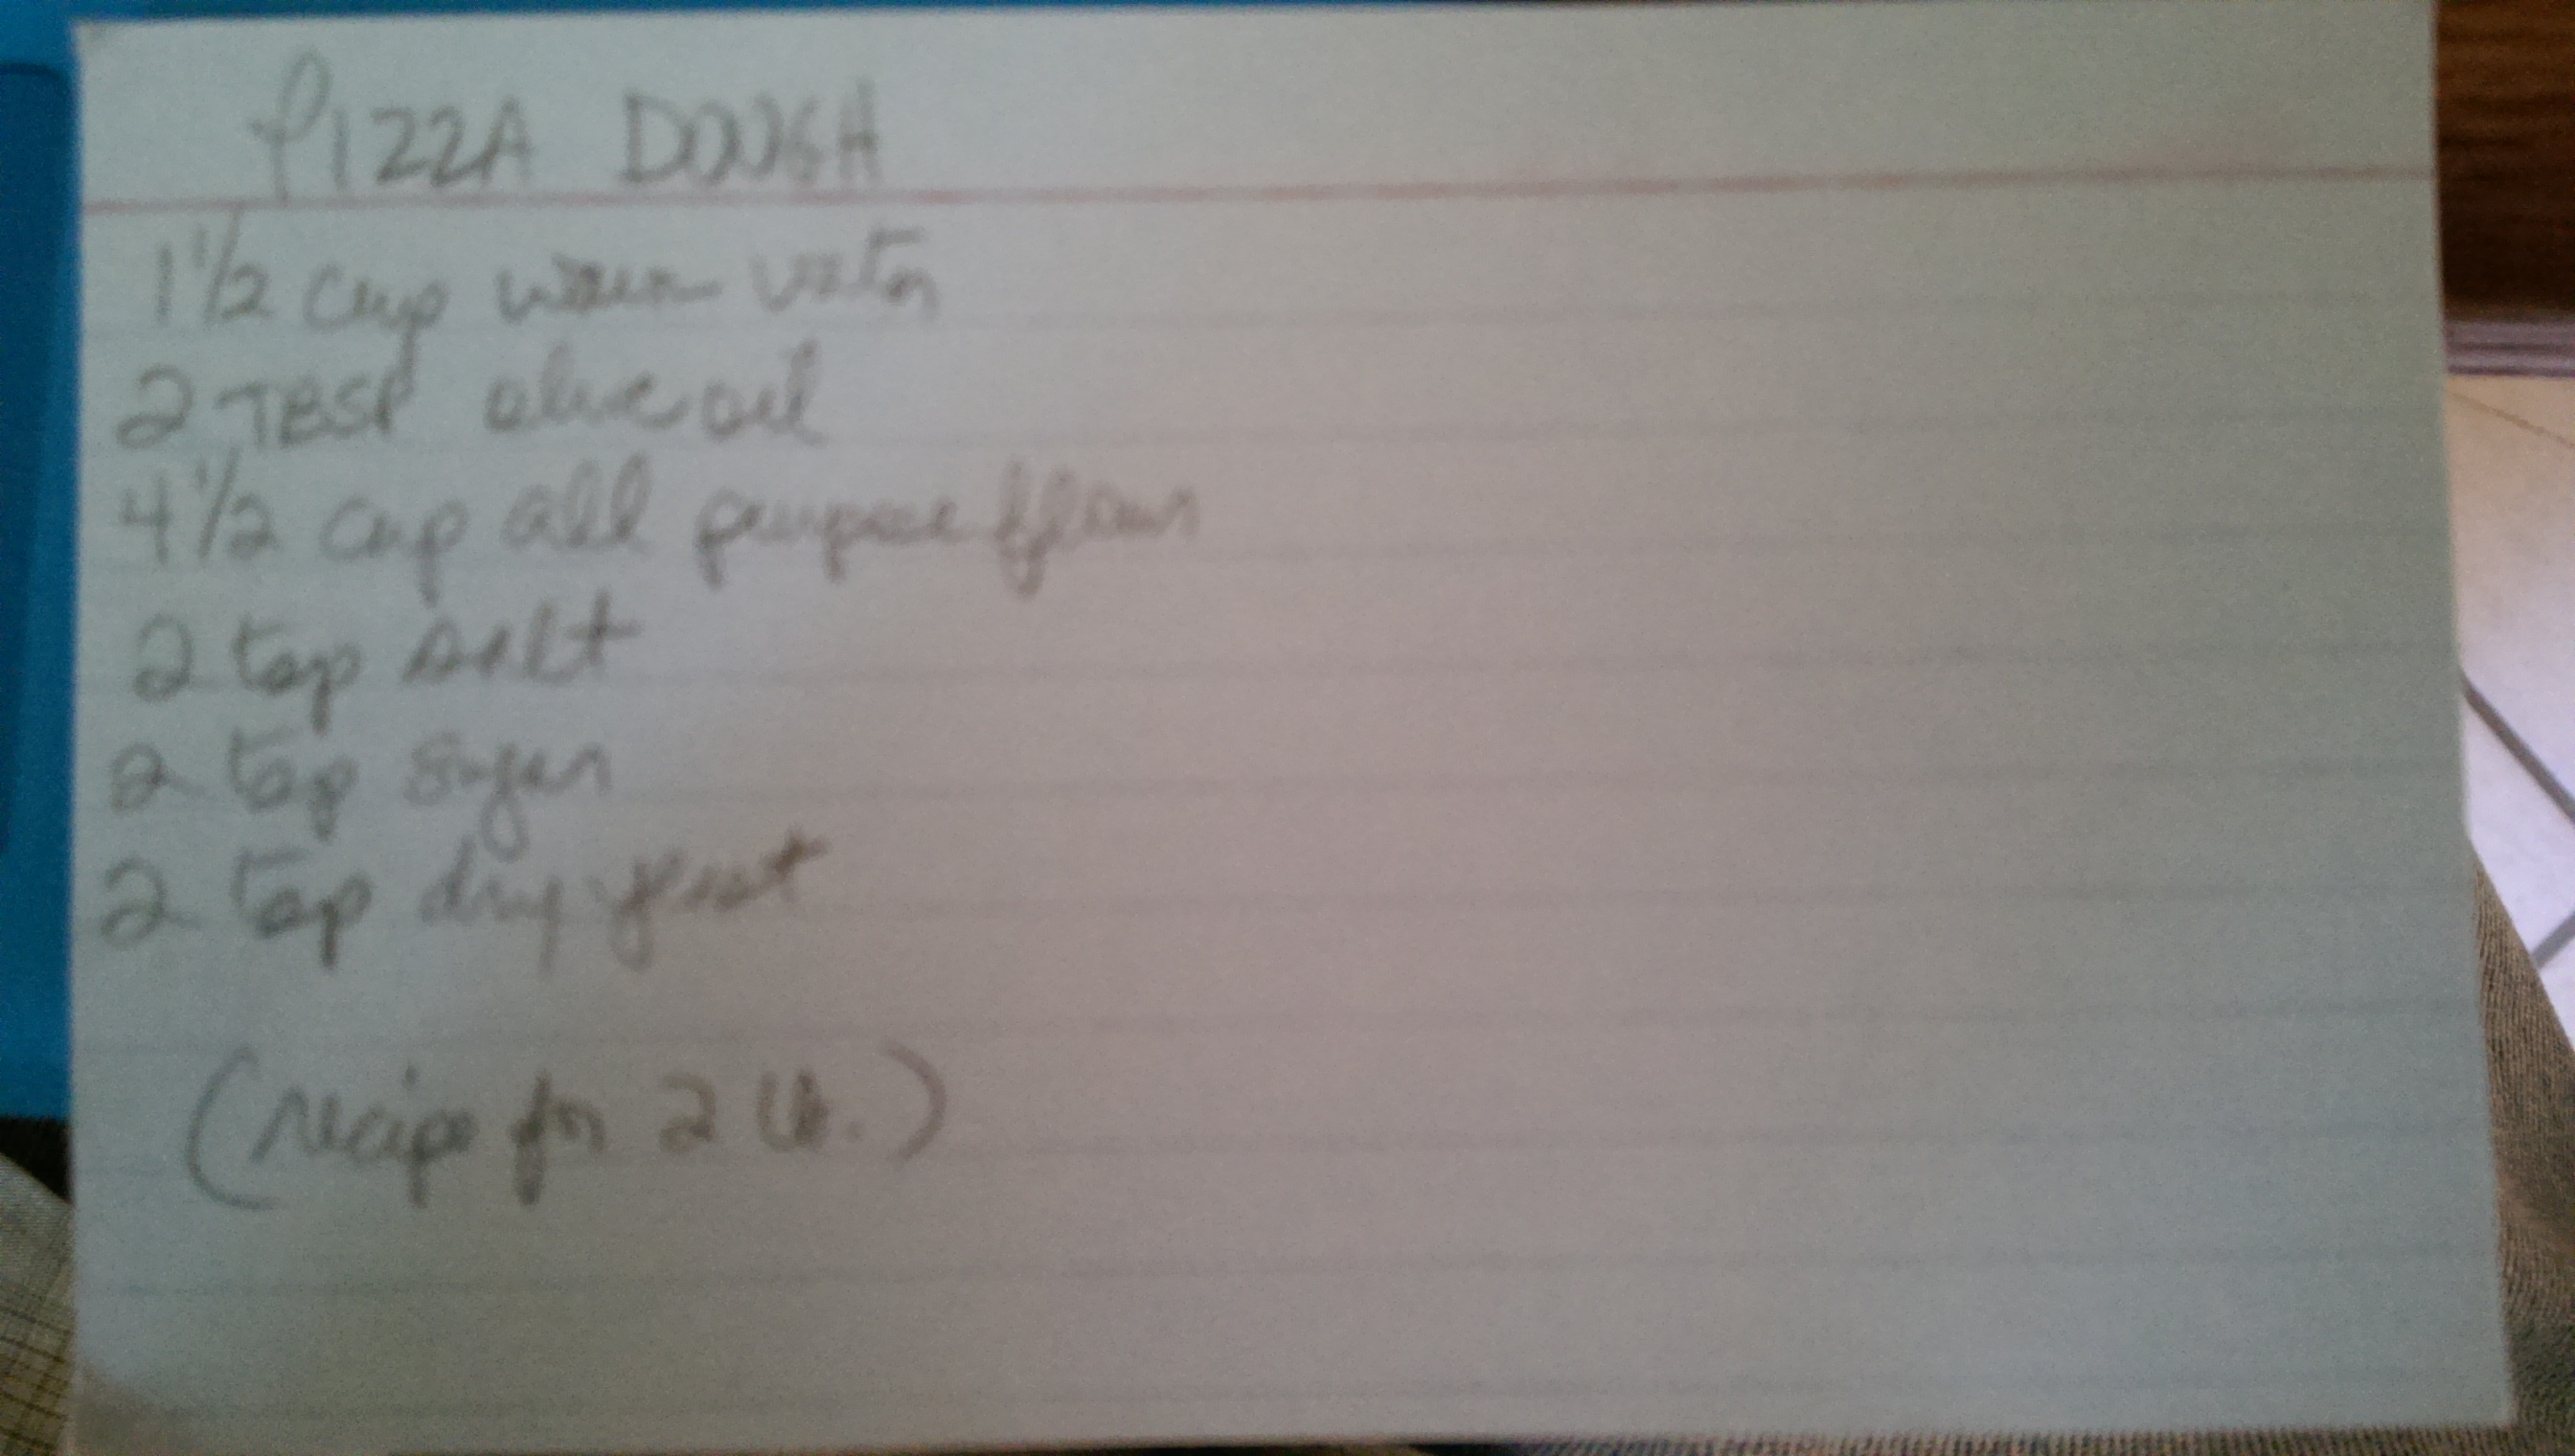 PIZZA DOUGH
1 1/2 cup warm water
2 TBSP olive oil
4 1/2 cup all purpose flour
2 tsp salt
2 tsp sugar
2 tsp dry yeast
(recipe for 2 lb.)